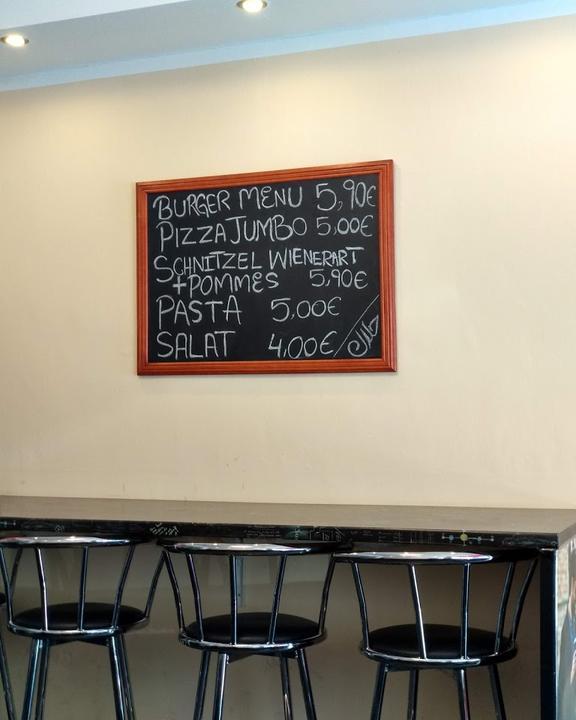 BURGER MENU 5,90€
PIZZA JUMBO 5,00€
SCHNITZEL WIENERART
+POMMES 5,90€
PASTA 5,00€
SALAT 4,00€